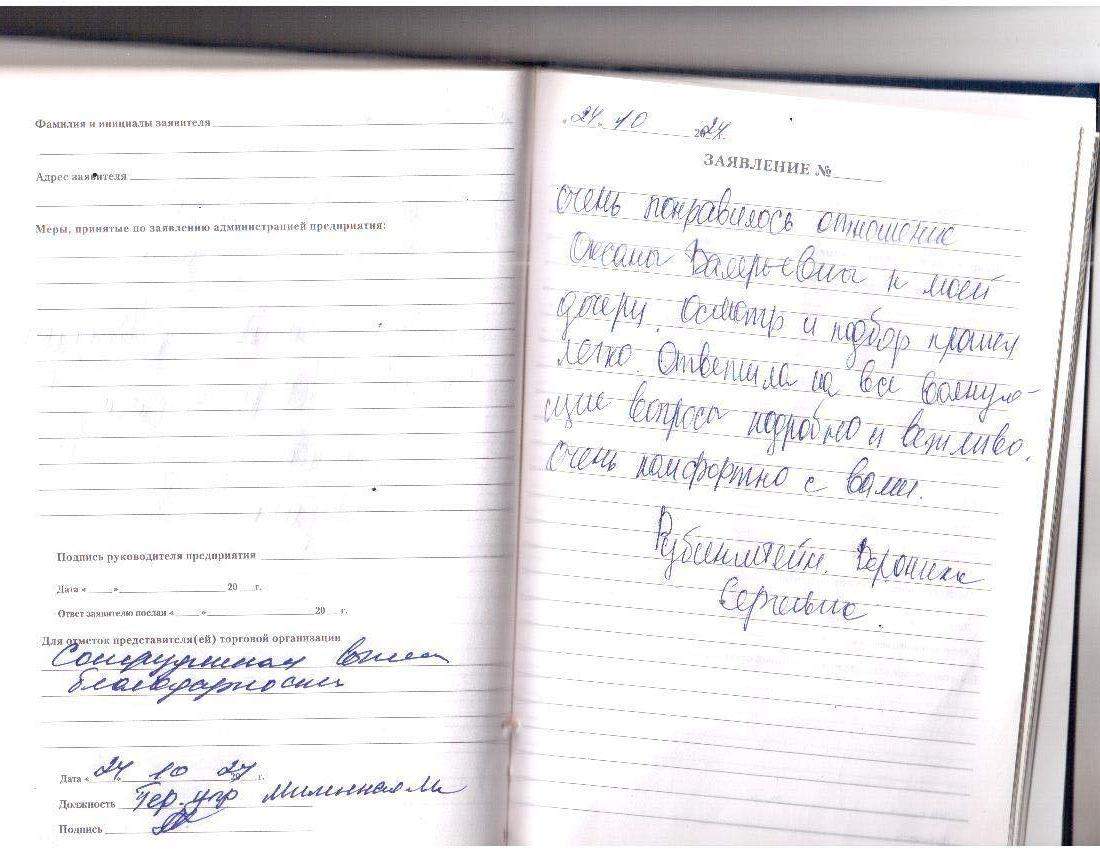 Фамилия и инициалы заявителя
Адрес заявителя
Меры, принятые по заявлению администрацией предприятия:
Подпись руководителя предприятия
Дата « » 20 г.
Ответ заявителю послан « » 20 г.
Для отметок представителя(ей) торговой организации
Сотрудникам
благодарности
Дата « 24 10 24 г.
Должность Тер. упр
Подпись
24. 10 2024.
ЗАЯВЛЕНИЕ №
Очень понравилось отношение
Оксаны Валерьевны к моей
дочери. Осмотр и подбор прошел
легко. Ответила на все волную-
щие вопросы подробно и вежливо.
Очень комфортно с вами.
Рубинштейн. Вероника
Сергеевна.